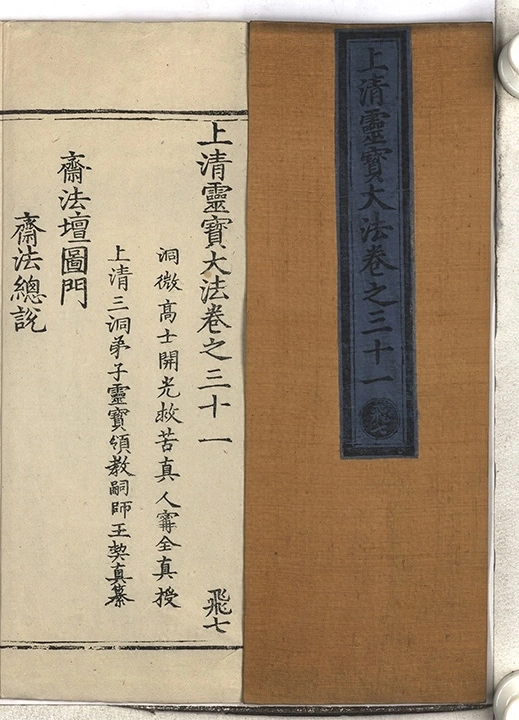 上清靈寶大法卷之三十一
飛七
上清靈寶大法卷之三十一
飛七
洞微髙士開光救苦真人甯全真授
上清三洞弟子靈寶領教嗣師王契真纂
齋法壇圖門
齋法總說